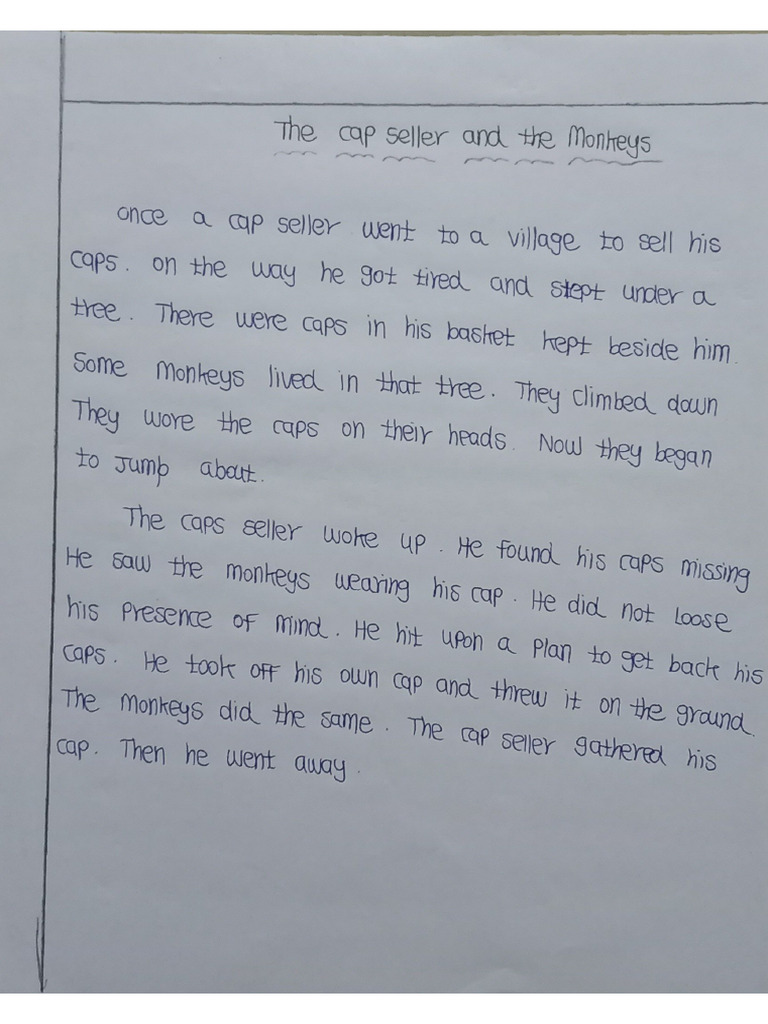 The cap seller and the Monkeys
once a cap seller went to a village to sell his
caps. on the way he got tired and slept under a
tree. There were caps in his basket kept beside him.
Some monkeys lived in that tree. They climbed down
They wore the caps on their heads. Now they began
to Jump about.
The caps seller woke up. He found his caps missing
He saw the monkeys wearing his cap. He did not loose
his presence of mind. He hit upon a plan to get back his
caps. He took off his own cap and threw it on the ground.
The monkeys did the same. The cap seller gathered his
cap. Then he went away.